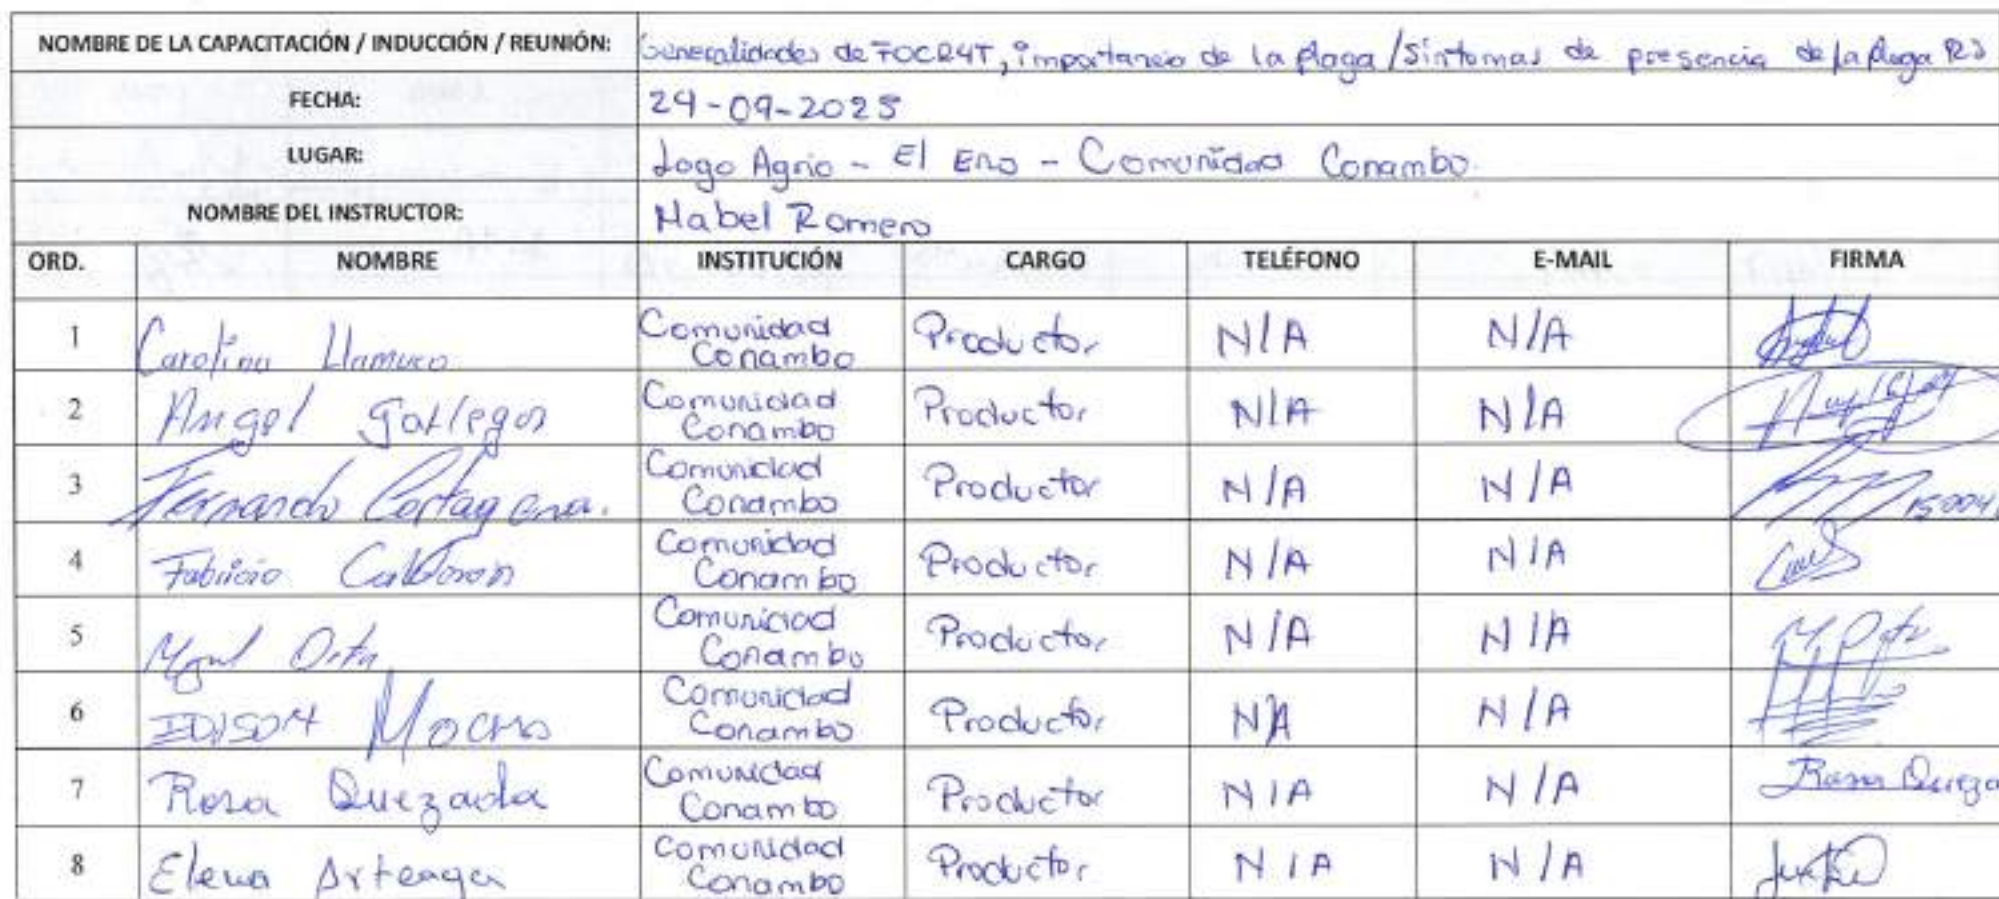 NOMBRE DE LA CAPACITACIÓN / INDUCCIÓN / REUNIÓN: Generalidades de FOCR4T, importancia de la plaga / Síntomas de presencia de la plaga R3
FECHA: 29-09-2025
LUGAR: Lago Agrio - El Eno - Comunidad Conambo.
NOMBRE DEL INSTRUCTOR: Mabel Romero
ORD. NOMBRE INSTITUCIÓN CARGO TELÉFONO E-MAIL FIRMA
1 Carolina Llamuco Comunidad Conambo Productor N/A N/A
2 Angel Gallegos Comunidad Conambo Productor N/A N/A
3 Fernando Cartagena. Comunidad Conambo Productor N/A N/A 15004
4 Fabricio Calderon Comunidad Conambo Productor N/A N/A
5 Comunidad Conambo Productor N/A N/A
6 EDISON Mocha Comunidad Conambo Productor N/A N/A
7 Rosa Quezada Comunidad Conambo Productor N/A N/A Rosa Queza
8 Elena Arteaga Comunidad Conambo Productor N/A N/A